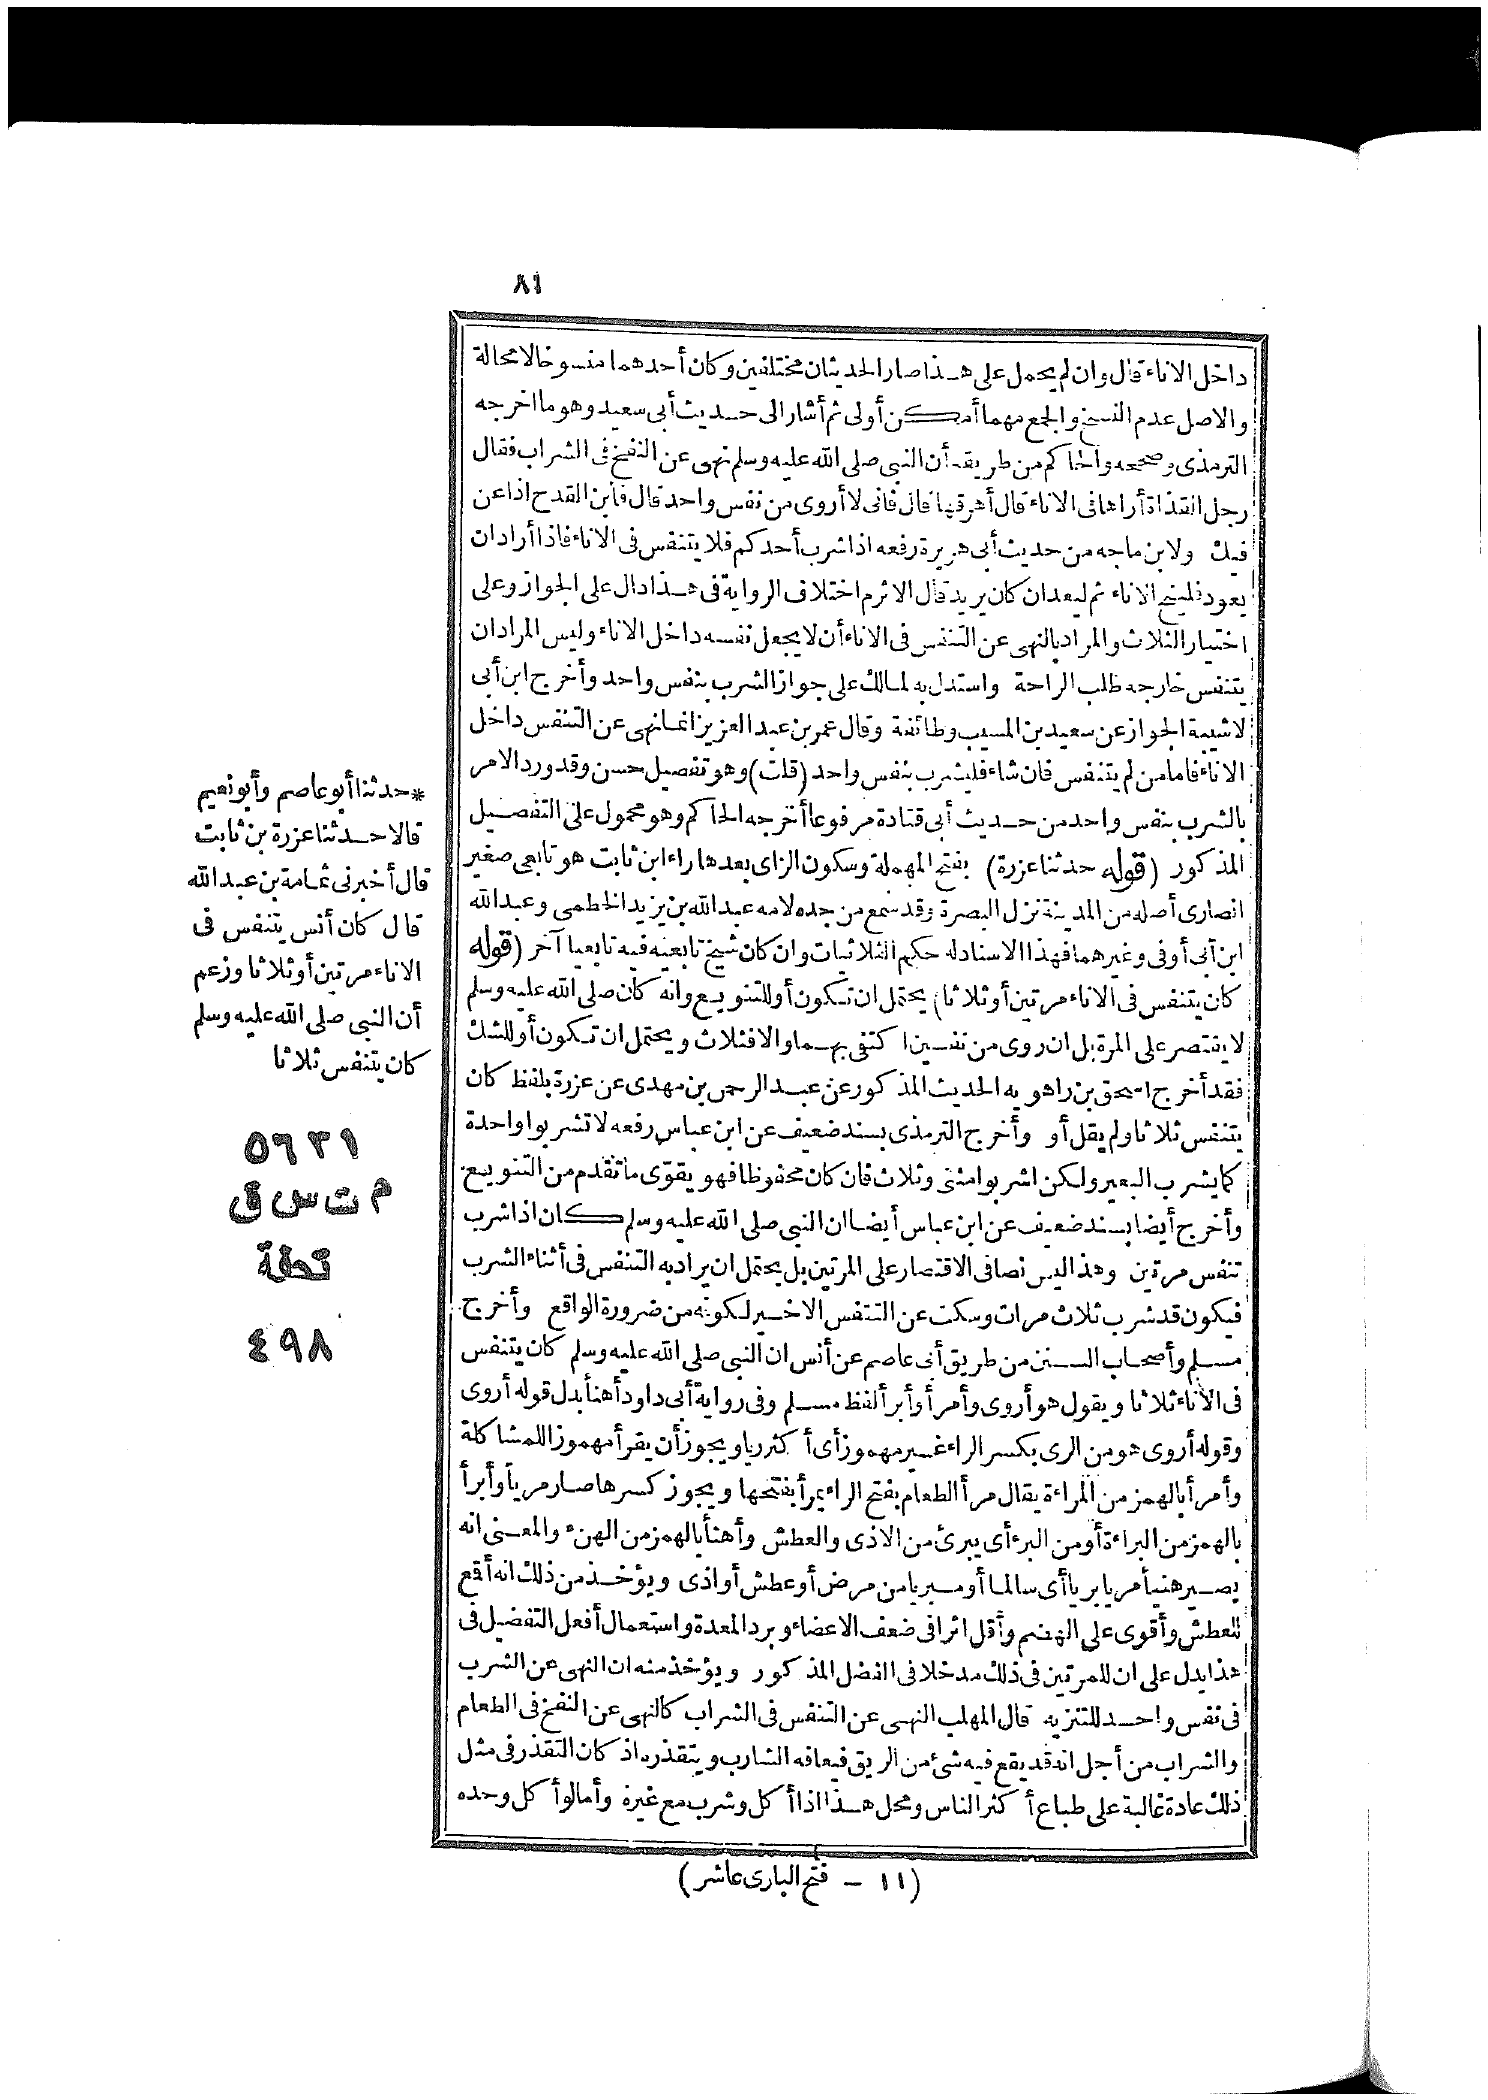 ٨١
داخل الاناء قال وان لم يحمل على هـذا صار الحديثان مختلفين وكان أحدهما منسوخا لا محالة
والاصل عدم النسخ والجمع مهما أمكن أولى ثم أشار الى حديث أبى سعيد وهو ما اخرجه
الترمذى وصححه والحاكم من طريقه أن النبى صلى الله عليه وسلم نهى عن النفخ فى الشراب فقال
رجل القذاة أراها فى الاناء قال أهرقها قال فانى لا أروى من نفس واحد قال فأبن القدح اذا عن
فيك ولابن ماجه من حديث أبى هريرة رفعه اذا شرب أحدكم فلا يتنفس فى الاناء فاذا أراد ان
يعود فلينح الاناء ثم ليعد ان كان يريد قال الاثرم اختلاف الرواية فى هـذا دال على الجواز وعلى
اختيار الثلاث والمراد بالنهى عن التنفس فى الاناء أن لا يجعل نفسه داخل الاناء وليس المراد ان
يتنفس خارجه طلب الراحة واستدل به لمالك على جواز الشرب بنفس واحد وأخرج ابن أبى
لاشيبة الجواز عن سعيد بن المسيب وطائفة وقال عمر بن عبد العزيز انما نهى عن التنفس داخل
الاناء فاما من لم يتنفس فان شاء فليشرب بنفس واحد (قلت) وهو تفصيل حسن وقد ورد الامر
بالشرب بنفس واحد من حديث أبى قتادة مرفوعا أخرجه الحاكم وهو محمول على التفصيل
المذكور (قوله حدثنا عزرة) بفتح المهملة وسكون الزاى بعدها راء ابن ثابت هو تابعى صغير
انصارى أصله من المدينة نزل البصرة وقد سمع من جده لامه عبد الله بن يزيد الخطمى وعبد الله
ابن أبى أوفى وغيرهما فهذا الاسناد له حكم الثلاثيات وان كان شيخ تابعيه فيه تابعيا آخر (قوله
كان يتنفس فى الاناء مرتين أو ثلاثا) يحتمل ان تكون أو للتنويع وانه كان صلى الله عليه وسلم
لا يقتصر على المرة بل ان روى من نفسين اكتفى بهما والا فثلاث ويحتمل ان تكون أو للشك
فقد أخرج اسحق بن راهويه الحديث المذكور عن عبد الرحمن بن مهدى عن عزرة بلفظ كان
يتنفس ثلاثا ولم يقل أو وأخرج الترمذى بسند ضعيف عن ابن عباس رفعه لا تشربوا واحدة
كما يشرب البعير ولكن اشربوا مثنى وثلاث فان كان محفوظا فهو يقوّى ما تقدم من التنويع
وأخرج أيضا بسند ضعيف عن ابن عباس أيضا ان النبى صلى الله عليه وسلم كان اذا شرب
تنفس مرتين وهذا ليس نصا فى الاقتصار على المرتين بل يحتمل ان يراد به التنفس فى أثناء الشرب
فيكون قد شرب ثلاث مرات وسكت عن التنفس الاخير لكونه من ضرورة الواقع وأخرج
مسلم وأصحاب السنن من طريق أبى عاصم عن أنس ان النبى صلى الله عليه وسلم كان يتنفس
فى الاناء ثلاثا ويقول هو أروى وأمرأ وأبرأ لفظ مسلم وفى رواية أبى داود أهنأ بدل قوله أروى
وقوله أروى هو من الرى بكسر الراء غير مهموز أى أكثر ريا ويجوز أن يقرأ مهموزا للمشاكلة
وأمرأ بالهمز من المراءة يقال مرأ الطعام بفتح الراء يمرأ بفتحها ويجوز كسرها صار مريأ وأبرأ
بالهمز من البراءة أو من البرء أى يبرئ من الاذى والعطش وأهنأ بالهمز من الهنء والمعنى انه
يصير هنيأ مريا بريا أى سالما أو مبريا من مرض أو عطش أو اذى ويؤخذ من ذلك انه أقمع
للعطش وأقوى على الهضم وأقل اثرا فى ضعف الاعضاء وبرد المعدة واستعمال أفعل التفضيل فى
هذا يدل على ان للمرتين فى ذلك مدخلا فى الفضل المذكور ويؤخذ منه ان النهى عن الشرب
فى نفس واحد للتنزيه قال المهلب النهى عن التنفس فى الشراب كالنهى عن النفخ فى الطعام
والشراب من أجل انه قد يقع فيه شئ من الريق فيعافه الشارب ويتقذره اذ كان التقذر فى مثل
ذلك عادة غالبة على طباع أكثر الناس ومحل هـذا اذا أكل وشرب مع غيره وأما لو أكل وحده
(١١ – فتح البارى عاشر)
*حدثنا أبو عاصم وأبو نعيم
قالا حدثنا عزرة بن ثابت
قال أخبرنى ثمامة بن عبد الله
قال كان أنس يتنفس فى
الاناء مرتين أو ثلاثا وزعم
أن النبى صلى الله عليه وسلم
كان يتنفس ثلاثا
٥٦٣١
م ت س ق
تحفة
٤٩٨